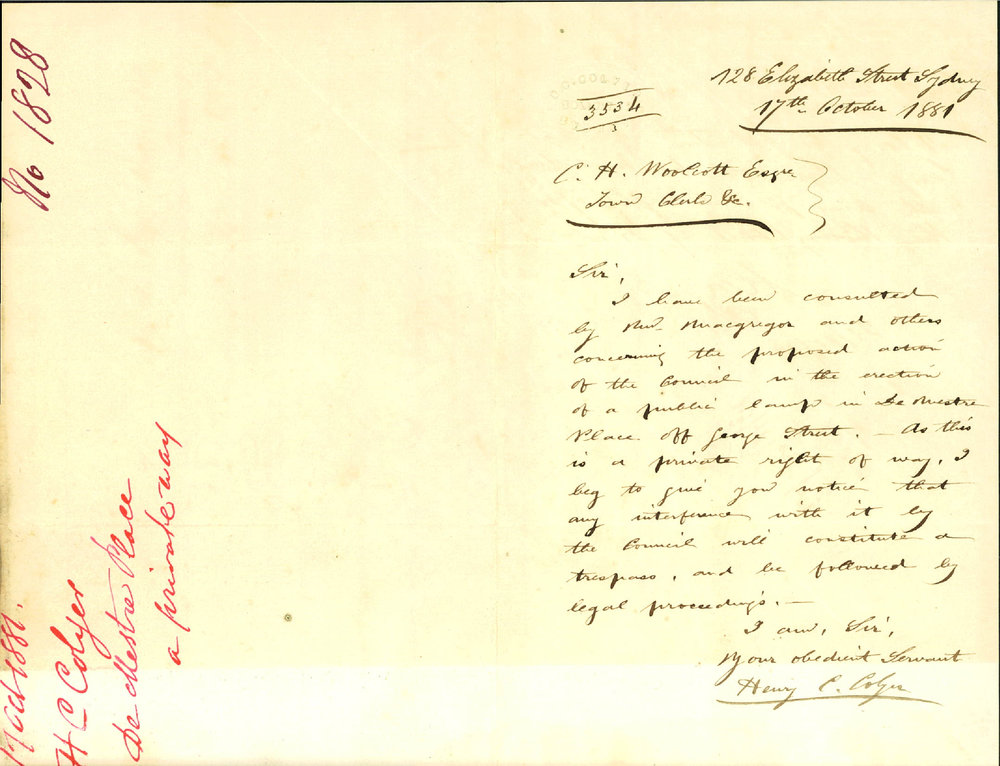 No 1828
17 Oct 1881.
H C Colyer
De Mestre Place
a private way
3534
128 Elizabeth Street Sydney
17th October 1881
C. H. Woolcott Esqre
Town Clerk &c.
Sir,
I have been consulted
by Mr. Macgregor and others
concerning the proposed action
of the Council in the erection
of a public lamp in De Mestre
Place off George Street. — As this
is a private right of way, I
beg to give you notice that
any interference with it by
the Council will constitute a
trespass, and be followed by
legal proceedings. —
I am, Sir,
Your obedient Servant
Henry C. Colyer